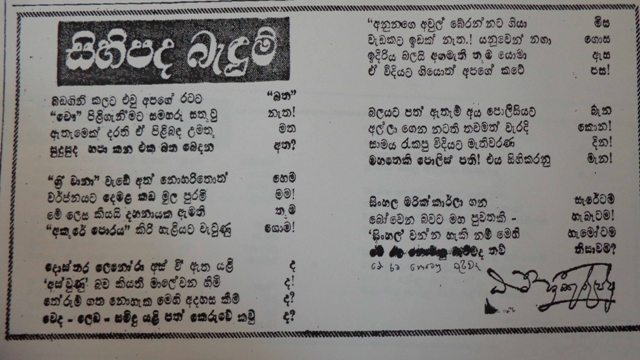 සිහිපද බැඳුම්
බඩගිනි කලට එවු අපගේ රටට "බත"
"චෞ" පිළිගැනීමට සමහරු සතුටු නැත!
ඇතැමෙක් දරති ඒ පිළිබඳ උමතු මත
සුදුසුද හපා කන එක බත බෙදන අත?
"ශ්‍රී ඩානා" වැඩේ අත් නොහරිතොත් හෙම
වර්ජනයට දෙමළ කඩ මුල පුරමි මම!
මේ ලෙස කියයි දහනායක ඇමති තුම
"අකුරේ පොරය" කිරි හැළියට වැටුණු ගොම!
දොස්තර ලෙනෝරා අස් වී ඇත යළි ද
'අස්වුණු' බව කියතී මාලේවන හිමි ද!
තේරුම් ගත නොහැක මෙහි අදහස කීම ද?
වෙද - ලෙඩ - සබඳ යළි පත් කෙරුවේ කවු ද?
"අනුනගෙ අවුල් බේරන්නට ගියා මිස
වැඩකට ඉඩක් නැත.! යනුවෙන් නගා ගොස
ඉදිරිය බලයි අගමැති තුම යොමා ඇස
ඒ විදියට ගියොත් අපගේ කටේ පස!
බලයට පත් ඇතැම් අය පොලිසියට බැන
අල්ලා ගෙන නටති තවමත් වැරදි කොන!
සාමය රැකපු විදියට මැතිවරණ දින!
මහතෙකි පොලිස් පති! එය සිහිකරනු මැන!
සිංහල මරික්කාර්ලා ගන සැරේටම
බෝවෙන බවට මහ පුවතකි - හැබෑටම!
'සිංහල' වන්න හැකි නම් මෙහි හැමෝටම
තව් තිසාවම්?